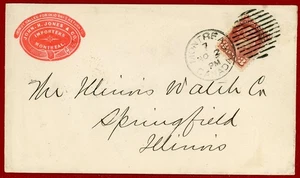 JONES & CO.
IMPORTERS
MONTREAL
MONTREAL
7
PM
The Illinois Watch Co
Springfield
Illinois